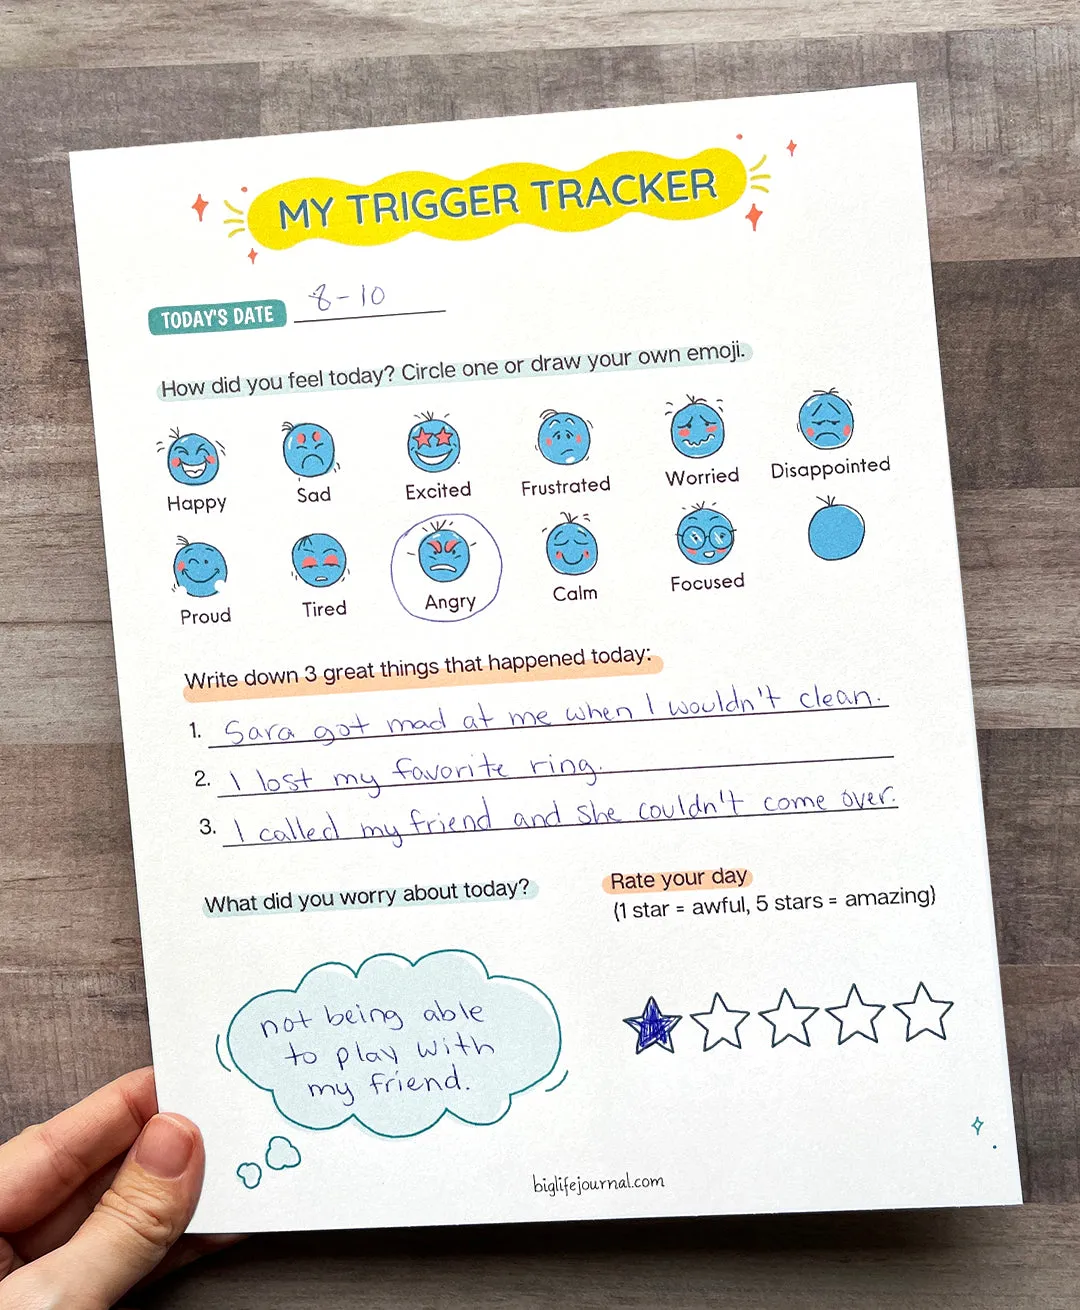 MY TRIGGER TRACKER
TODAY'S DATE 8-10
How did you feel today? Circle one or draw your own emoji.
Happy Sad Excited Frustrated Worried Disappointed
Proud Tired Angry Calm Focused
Write down 3 great things that happened today:
1. Sara got mad at me when I wouldn't clean.
2. I lost my favorite ring.
3. I called my friend and she couldn't come over.
What did you worry about today?
not being able
to play with
my friend.
Rate your day
(1 star = awful, 5 stars = amazing)
biglifejournal.com